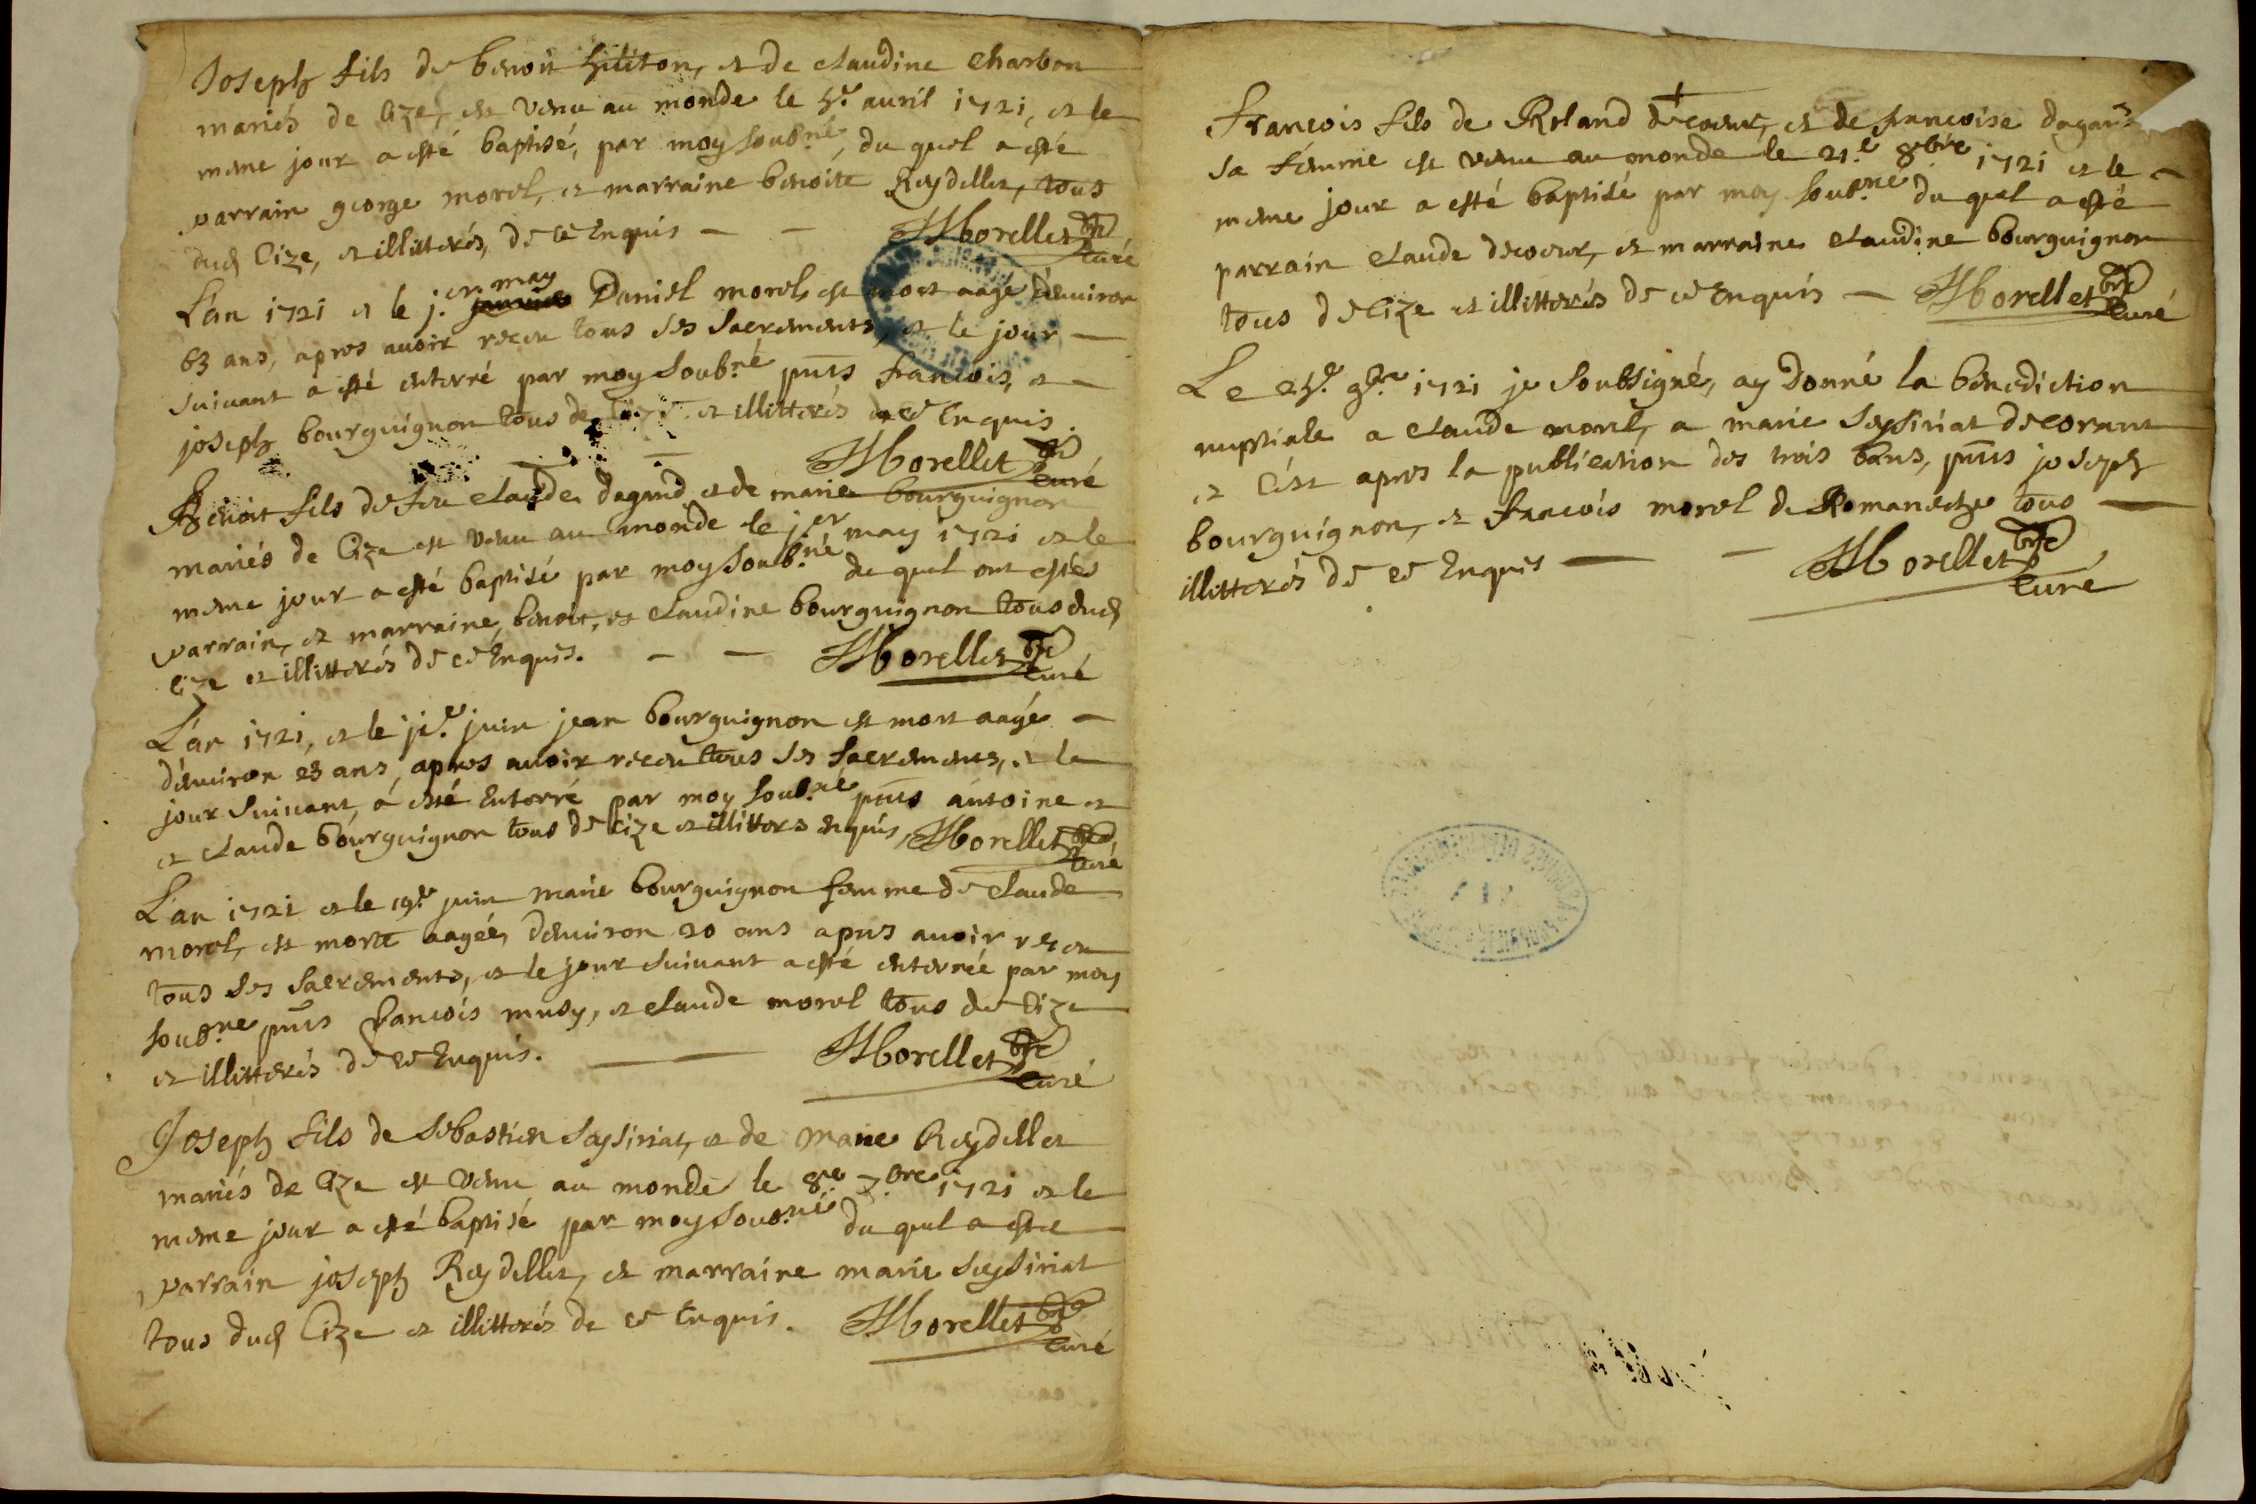 Joseph fils de benoit hiliton, et de claudine charbon
mariés de Cize, est venu au monde le 5.e avril 1721, et le
meme jour a esté baptisé, par moy soub.né, du quel a esté
parrain george morel, et marraine benoite Reydellet, tous
dud Cize, et illitterés, de ce Enquis — — Morellet ptre
curé
L'an 1721 et le j.er may Daniel morel, est mort aagé d'environ
63 ans, apres avoir receu tous ses sacrements, et le jour —
suivant a esté enterré par moy soub.né pnts francois, et —
joseph bourguignon tous de Cize et illitterés de ce Enquis.
— Morellet ptre
curé
Benoit fils de feu claude dagand, et de marie bourguignon
mariés de Cize est venu au monde le j.er may 1721 et le
meme jour a esté baptisé par moy soub.né du quel ont estés
parrain, et marraine, benoit, et claudine bourguignon tous dud
Cize et illitterés de ce Enquis. — — Morellet ptre
curé
L'an 1721, et le ji.e juin jean bourguignon est mort aagé —
d'environ 23 ans, apres avoir receu tous ses sacrements, et le
jour suivant, a esté Enterré par moy soub.né pnts antoine et
et claude bourguignon tous de Cize et illitterés enquis, Morellet ptre
curé
L'an 1721 et le 19.e juin marie bourguignon femme de claude
morel, est morte aagée, d'environ 20 ans apres avoir receu
tous ses sacrements, et le jour suivant a esté enterrée par moy
soub.né pnts francois musy, et claude morel tous de Cize
et illitterés de ce Enquis. — Morellet ptre
curé
Joseph fils de sebastien seysiriat, et de marie Reydellet
mariés de Cize est venu au monde le 8.e 7.bre 1721 et le
meme jour a esté baptisé par moy soub.né du quel a esté
parrain joseph Reydellet, et marraine marie seysiriat
tous dud Cize et illitterés de ce Enquis. Morellet ptre
curé
Francois fils de Roland decoeur, et de francoise dagand
sa femme est venu au monde le 21.e 8.bre 1721 et le —
meme jour a esté baptisé par moy soub.né du quel a esté
parrain claude decoeur, et marraine claudine bourguignon
tous de Cize et illitterés de ce Enquis — Morellet ptre
curé
Le 25.e 9.bre 1721 je soubsigné, ay donné la benediction
nuptiale a claude morel, a marie seysiriat de corant
et Cize apres la publication des trois bans, pnts joseph
bourguignon, et francois morel de Romaneche tous —
illitterés de ce Enquis — — Morellet ptre
curé